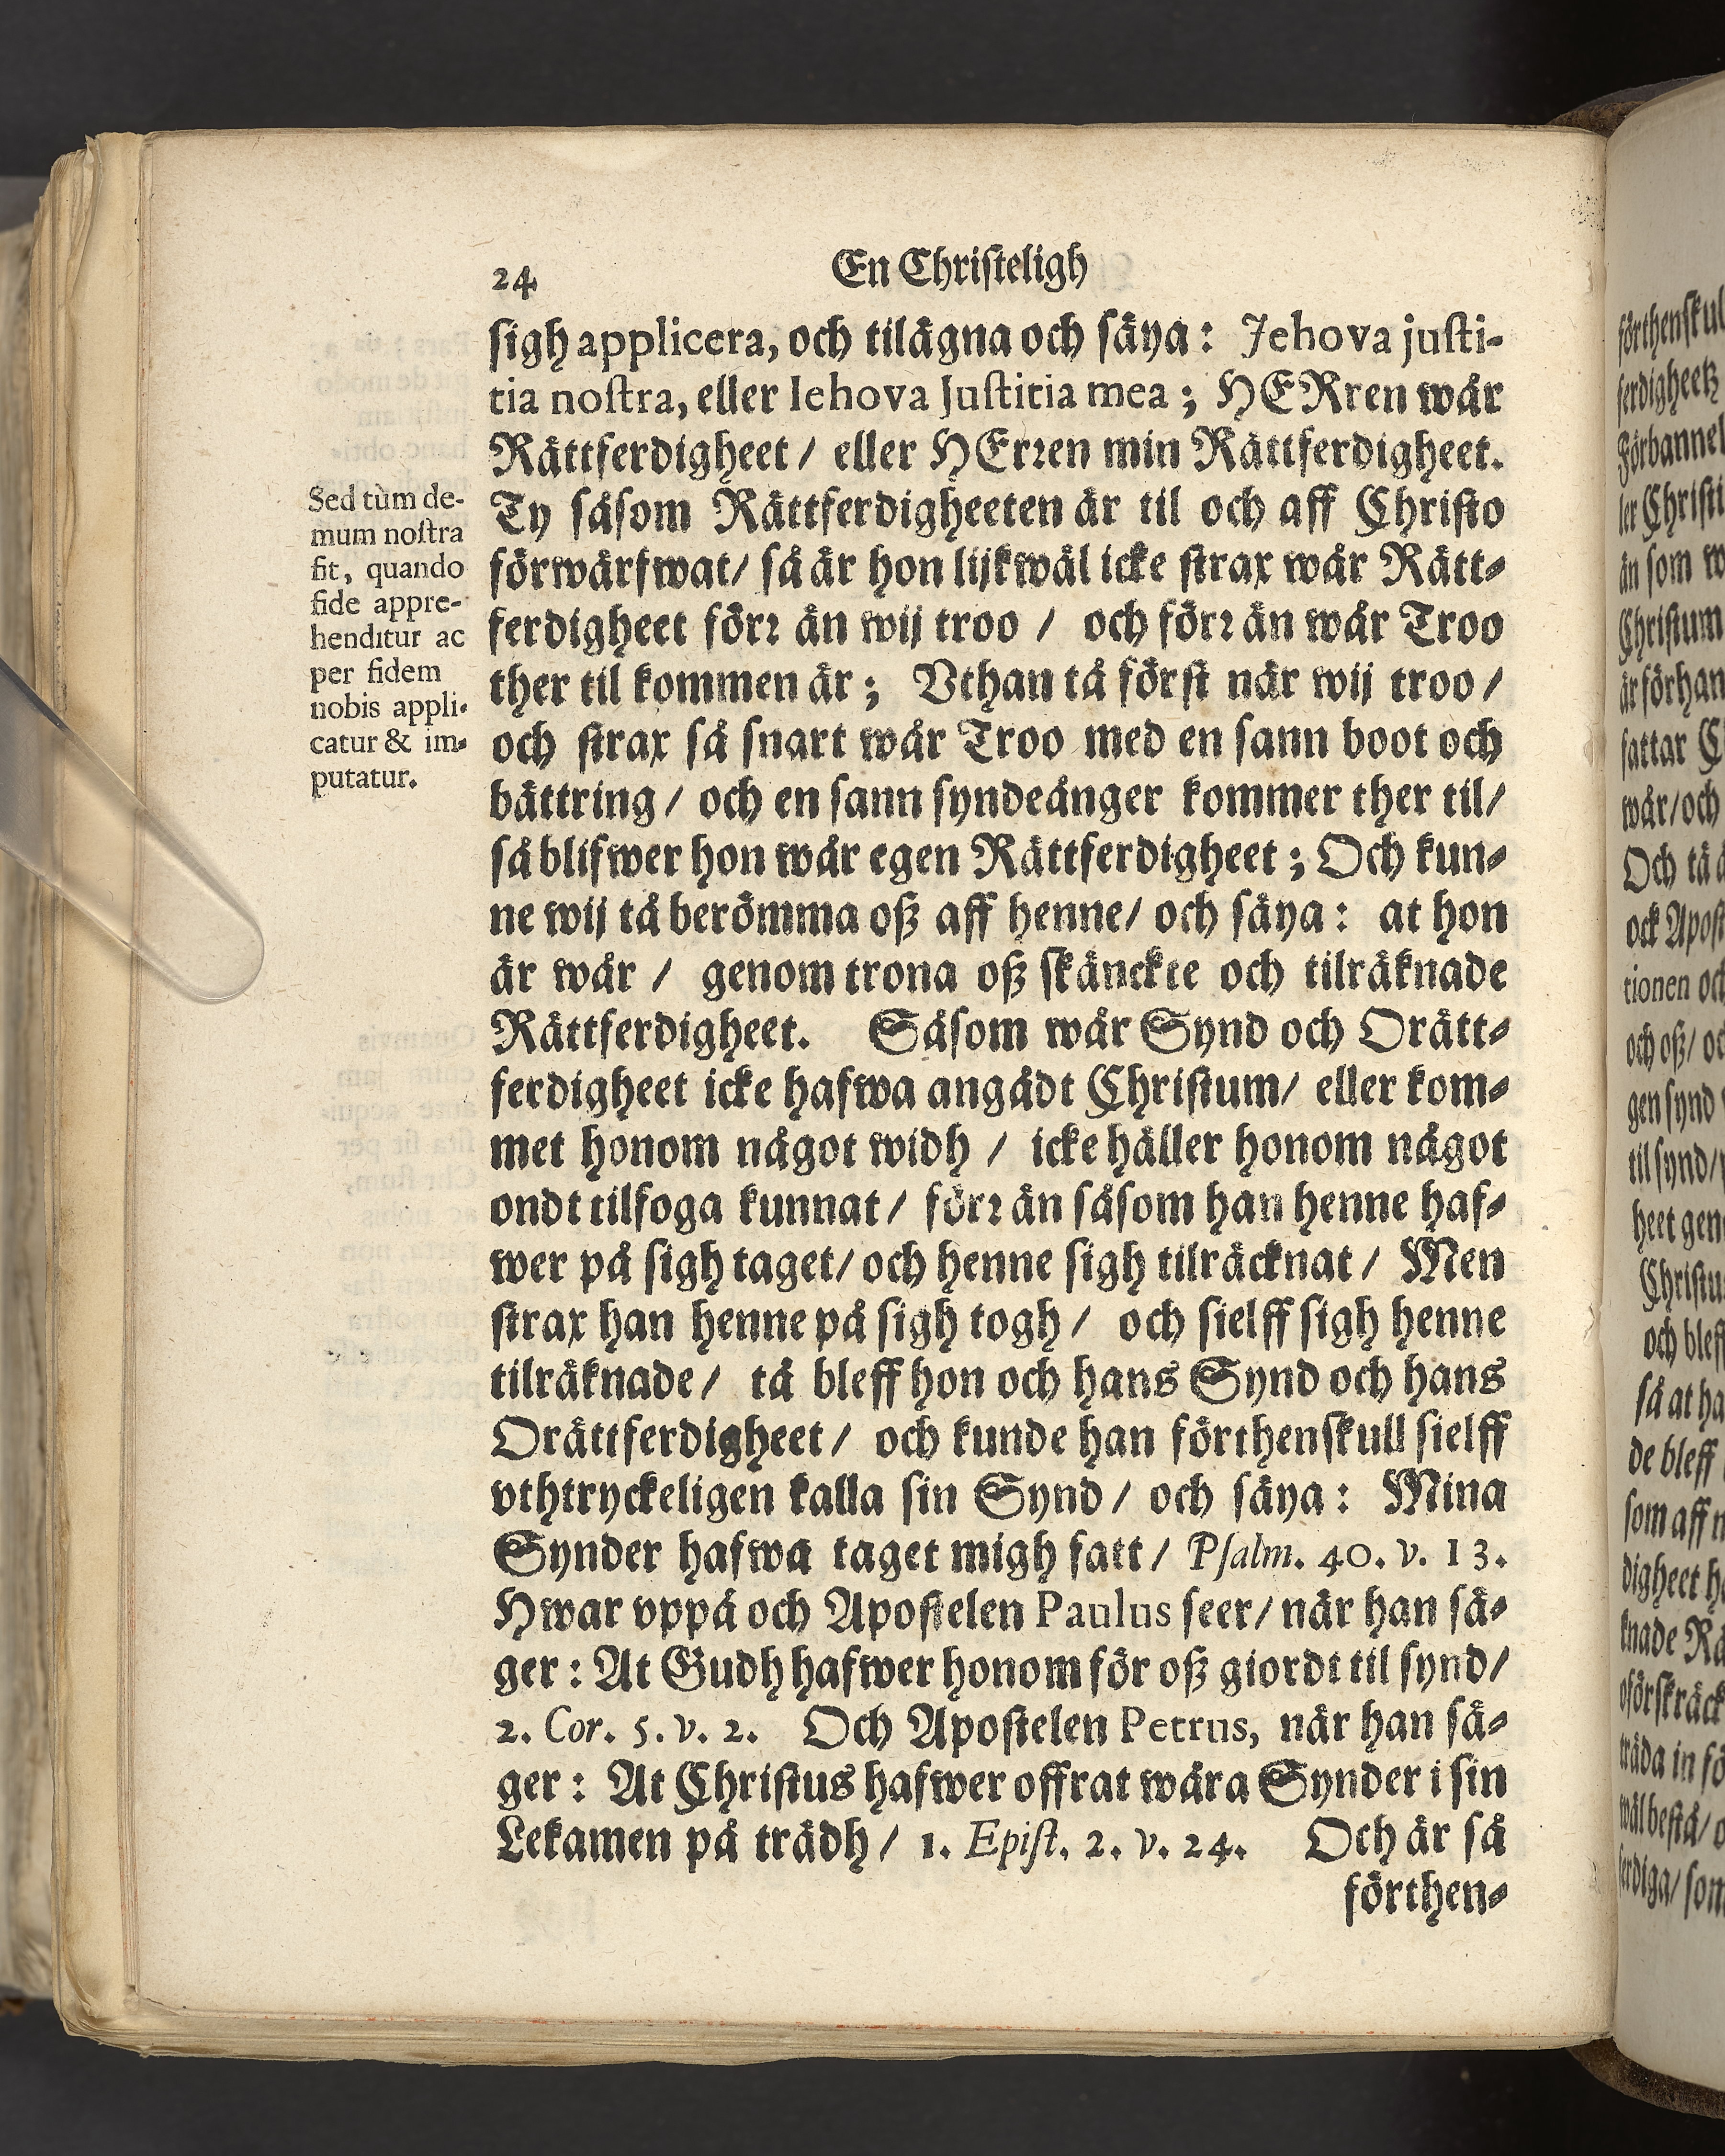 24
En Christeligh
sigh applicera, och tilägna och säya: Jehova justi-
tia nostra, eller Iehova Justitia mea; HERren wår
Rättferdigheet / eller HErren min Rättferdigheet.
Ty såsom Rättferdigheeten är til och aff Christo
förwärfwat/ så är hon lijkwäl icke strax wår Rätt-
ferdigheet förr än wij troo / och förr än wår Troo
ther til kommen är; Vthan tå först när wij troo /
och strax så snart wår Troo med en sann boot och
bättring / och en sann syndeånger kommer ther til/
så blifwer hon wår egen Rättferdigheet; Och kun-
ne wij tå berömma oß aff henne/ och säya: at hon
är wår / genom trona oß skänckte och tilräknade
Rättferdigheet. Såsom wår Synd och Orätt-
ferdigheet icke hafwa angådt Christum/ eller kom-
met honom något widh / icke häller honom något
ondt tilfoga kunnat / förr än såsom han henne haf-
wer på sigh taget/ och henne sigh tilräcknat / Men
strax han henne på sigh togh / och sielff sigh henne
tilräknade / tå bleff hon och hans Synd och hans
Orättferdigheet / och kunde han förthenskull sielff
vthtryckeligen kalla sin Synd / och säya: Mina
Synder hafwa taget migh fatt / Psalm. 40. v. 13.
Hwar vppå och Apostelen Paulus seer/ när han sä-
ger: At Gudh hafwer honom för oß giordt til synd/
2. Cor. 5. v. 2. Och Apostelen Petrus, när han sä-
ger: At Christus hafwer offrat wåra Synder i sin
Lekamen på trädh / 1. Epist. 2. v. 24. Och är så
förthen-
Sed tùm de-
mum nostra
fit, quando
fide appre-
henditur ac
per fidem
nobis appli-
catur & im-
putatur.